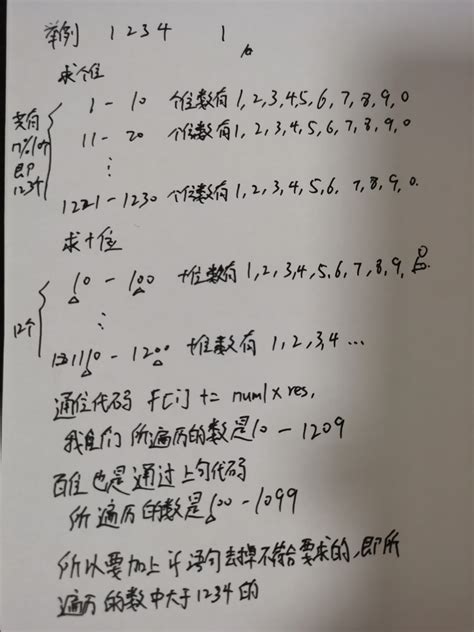 举例 1234 1
求个位
1 - 10 个位数有 1,2,3,4,5,6,7,8,9,0
共有
n/10个
即
1234
11 - 20 个位数有 1,2,3,4,5,6,7,8,9,0
⋮
1221 - 1230 个位数有 1,2,3,4,5,6,7,8,9,0.
求十位
10 - 100 十位数有 1,2,3,4,5,6,7,8,9,0.
12个
⋮
1110 - 1200 十位数有 1,2,3,4 ...
通过代码 f[i] += num1 × res,
我们 所遍历的数是10 - 1209
百位也是通过上句代码
所遍历的数是100 - 1099
所以要加上 if 语句去掉不符合要求的,即所
遍历的数中大于1234的